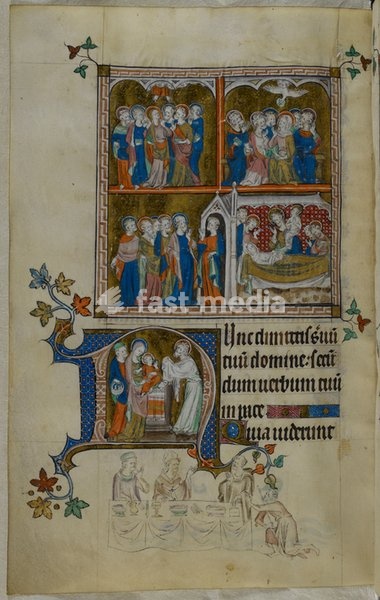 fast media
NUnc dimittis ẜuū
tuū domine: secū
dum verbum tuū
in pace
Quia viderunt